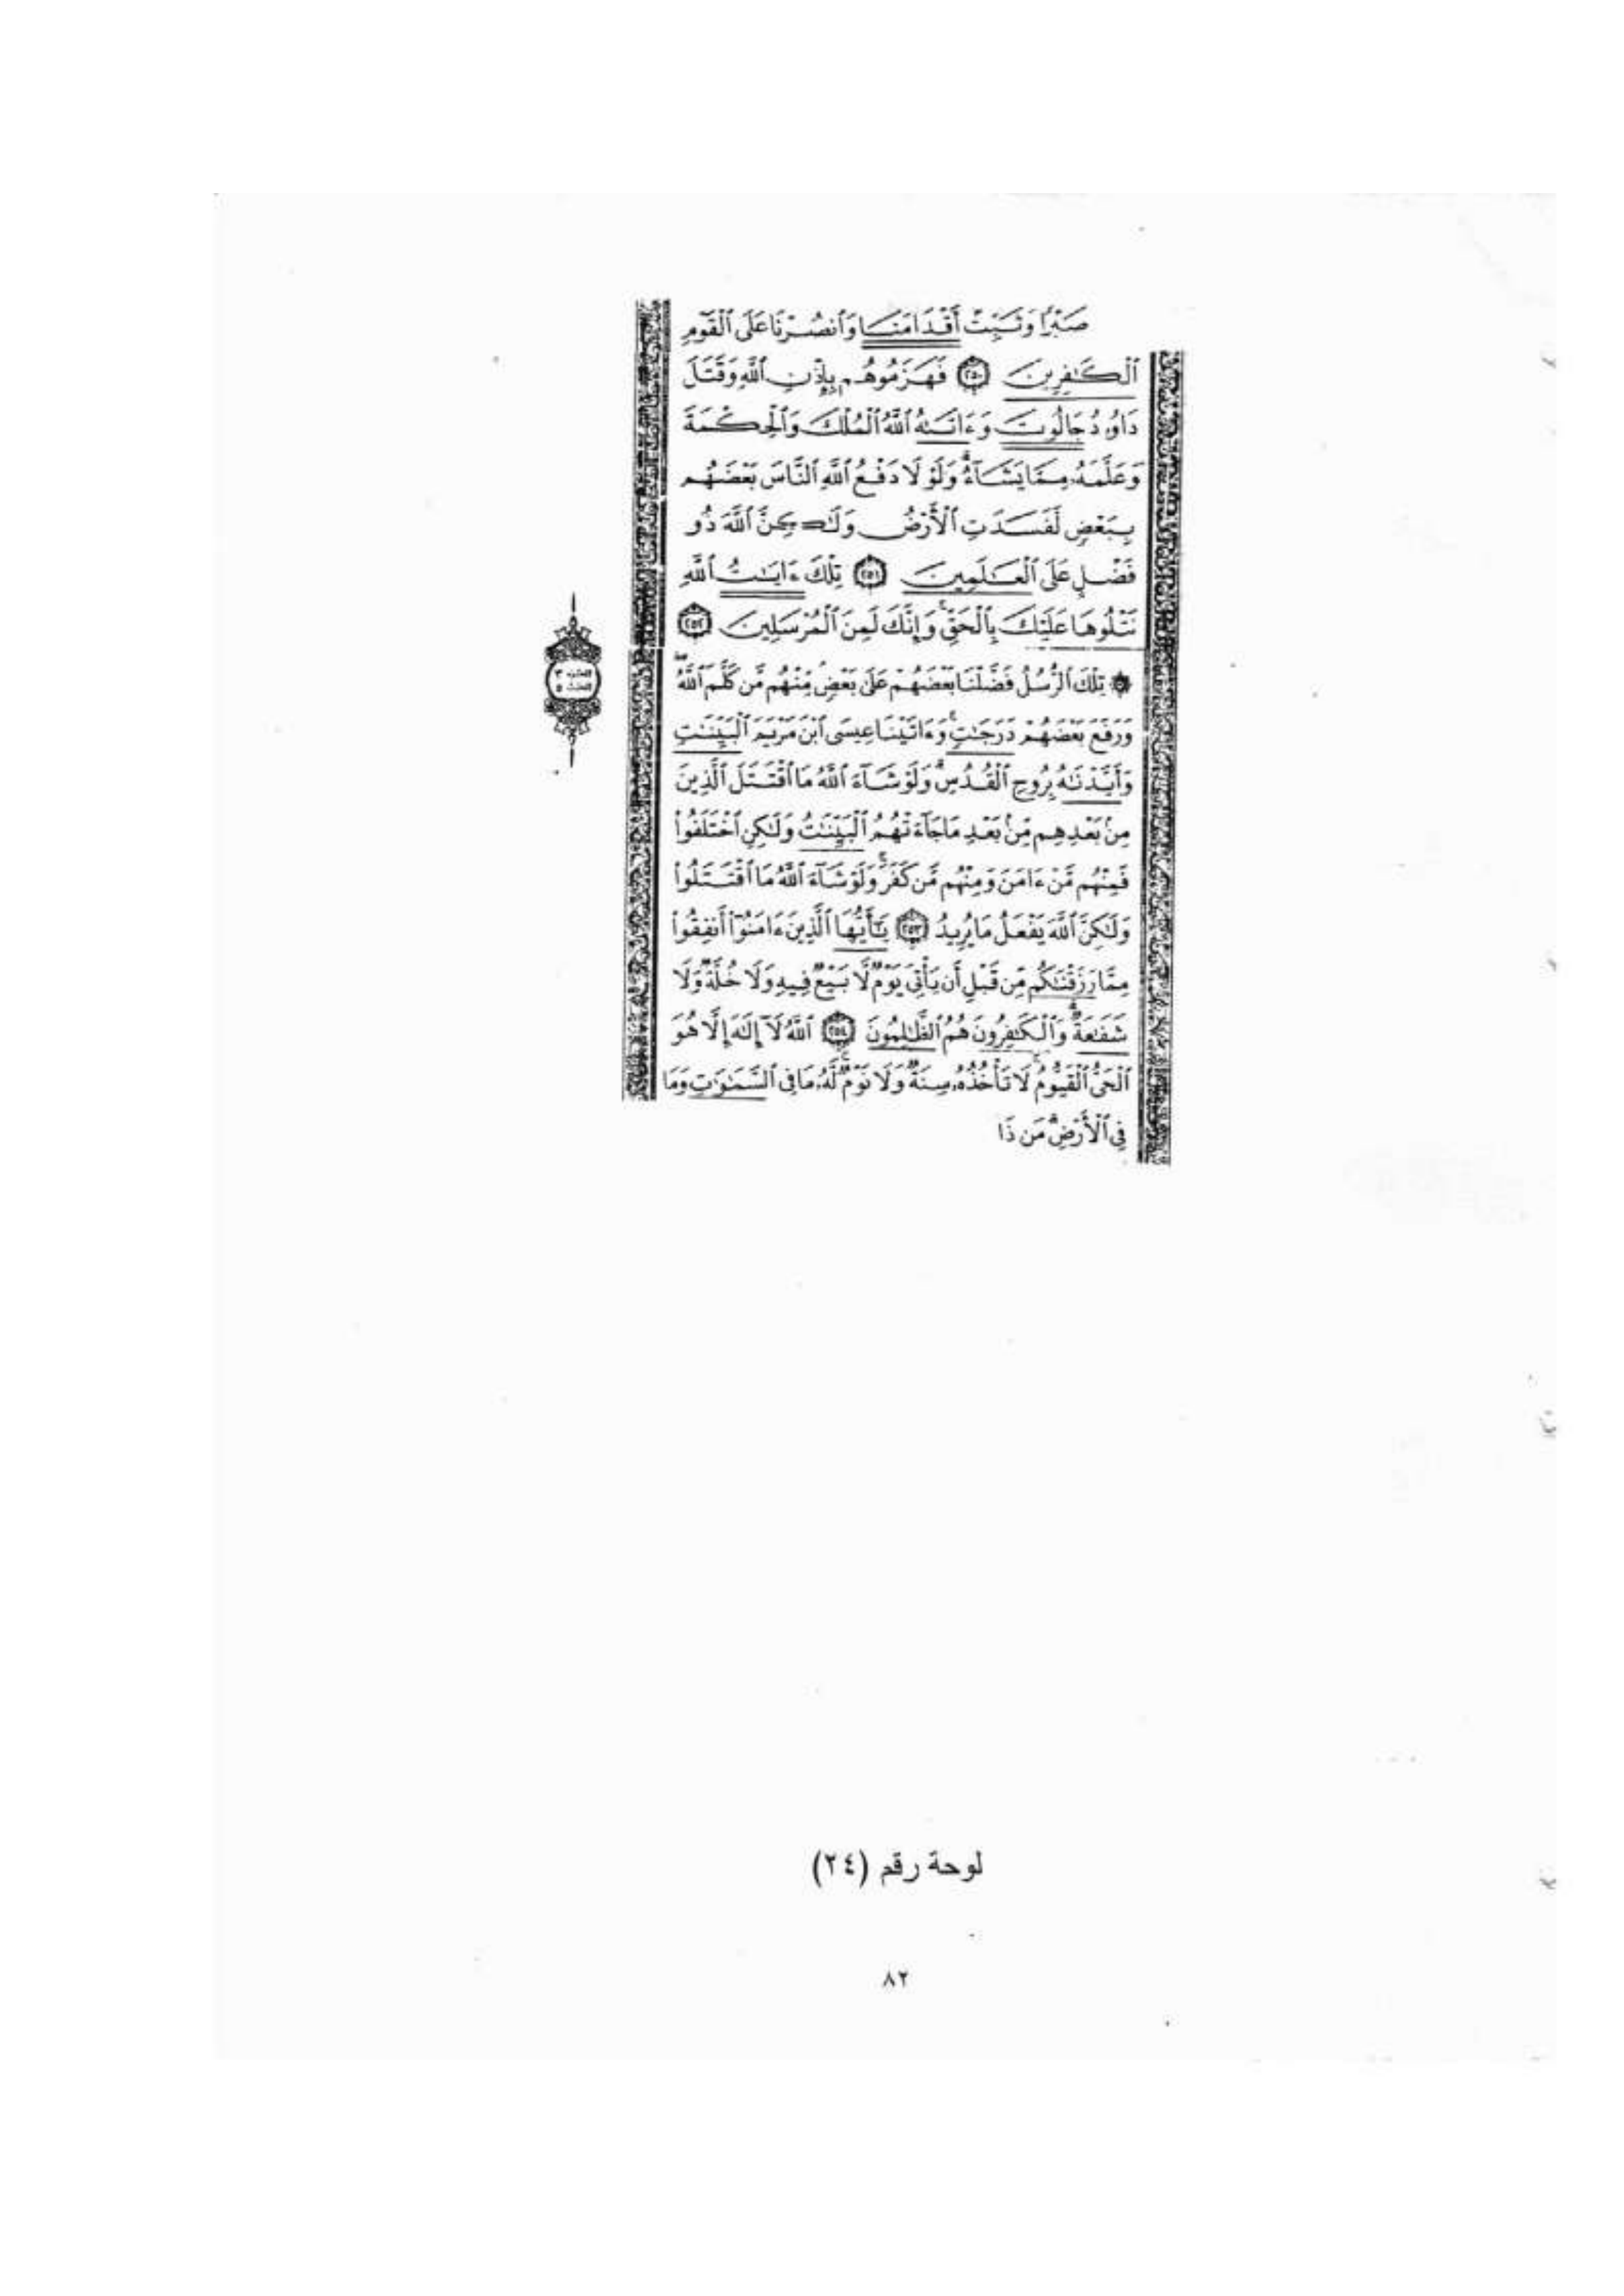 صَبْرًا وَثَبِّتْ أَقْدَامَنَا وَٱنصُرْنَا عَلَى ٱلْقَوْمِ
ٱلْكَـٰفِرِينَ ﴿٢٥٠﴾ فَهَزَمُوهُم بِإِذْنِ ٱللَّهِ وَقَتَلَ
دَاوُۥدُ جَالُوتَ وَءَاتَىٰهُ ٱللَّهُ ٱلْمُلْكَ وَٱلْحِكْمَةَ
وَعَلَّمَهُۥ مِمَّا يَشَآءُ ۗ وَلَوْلَا دَفْعُ ٱللَّهِ ٱلنَّاسَ بَعْضَهُم
بِبَعْضٍ لَّفَسَدَتِ ٱلْأَرْضُ وَلَـٰكِنَّ ٱللَّهَ ذُو
فَضْلٍ عَلَى ٱلْعَـٰلَمِينَ ﴿٢٥١﴾ تِلْكَ ءَايَـٰتُ ٱللَّهِ
نَتْلُوهَا عَلَيْكَ بِٱلْحَقِّ ۚ وَإِنَّكَ لَمِنَ ٱلْمُرْسَلِينَ ﴿٢٥٢﴾
الجزء ٣
الحزب ٥
۞ تِلْكَ ٱلرُّسُلُ فَضَّلْنَا بَعْضَهُمْ عَلَىٰ بَعْضٍ ۘ مِّنْهُم مَّن كَلَّمَ ٱللَّهُ ۖ
وَرَفَعَ بَعْضَهُمْ دَرَجَـٰتٍ ۚ وَءَاتَيْنَا عِيسَى ٱبْنَ مَرْيَمَ ٱلْبَيِّنَـٰتِ
وَأَيَّدْنَـٰهُ بِرُوحِ ٱلْقُدُسِ ۗ وَلَوْ شَآءَ ٱللَّهُ مَا ٱقْتَتَلَ ٱلَّذِينَ
مِنۢ بَعْدِهِم مِّنۢ بَعْدِ مَا جَآءَتْهُمُ ٱلْبَيِّنَـٰتُ وَلَـٰكِنِ ٱخْتَلَفُوا۟
فَمِنْهُم مَّنْ ءَامَنَ وَمِنْهُم مَّن كَفَرَ ۚ وَلَوْ شَآءَ ٱللَّهُ مَا ٱقْتَتَلُوا۟
وَلَـٰكِنَّ ٱللَّهَ يَفْعَلُ مَا يُرِيدُ ﴿٢٥٣﴾ يَـٰٓأَيُّهَا ٱلَّذِينَ ءَامَنُوٓا۟ أَنفِقُوا۟
مِمَّا رَزَقْنَـٰكُم مِّن قَبْلِ أَن يَأْتِىَ يَوْمٌ لَّا بَيْعٌ فِيهِ وَلَا خُلَّةٌ وَلَا
شَفَـٰعَةٌ ۗ وَٱلْكَـٰفِرُونَ هُمُ ٱلظَّـٰلِمُونَ ﴿٢٥٤﴾ ٱللَّهُ لَآ إِلَـٰهَ إِلَّا هُوَ
ٱلْحَىُّ ٱلْقَيُّومُ ۚ لَا تَأْخُذُهُۥ سِنَةٌ وَلَا نَوْمٌ ۚ لَّهُۥ مَا فِى ٱلسَّمَـٰوَٰتِ وَمَا
فِى ٱلْأَرْضِ ۗ مَن ذَا
لوحة رقم (٢٤)
٨٢